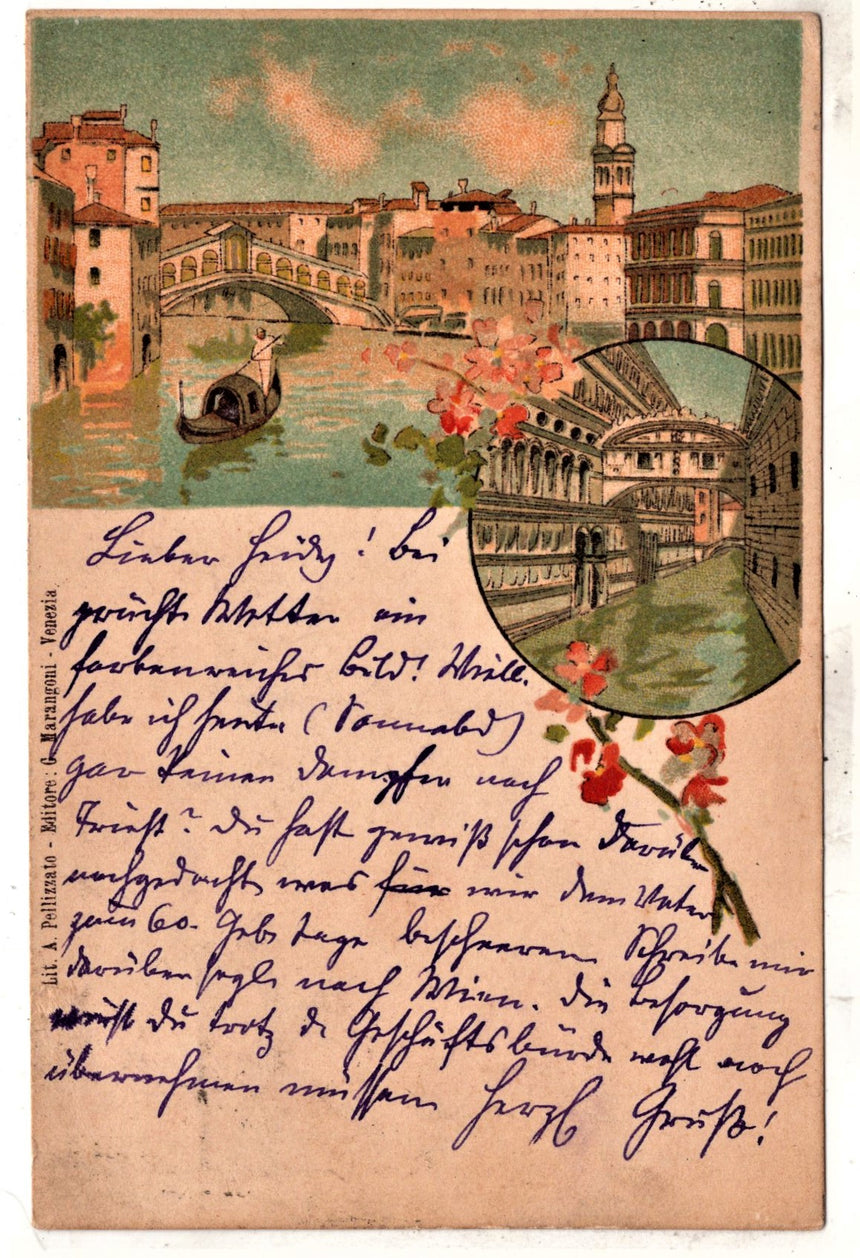 Lieber Heidy! Bei
prächt. Wetter ein
farbenreiches Bild! Viell.
habe ich heute (Sonnabd)
gar keinen Dampfer nach
Triest? Du hast gewiß schon darüber
nachgedacht, was für wir dem Vater
zum 60. Gebtstage bescheeren. Schreibe mir
darüber sogl. nach Wien. Die Besorgung
wirst Du trotz d. Geschäftsbürde wohl noch
übernehmen müssen. Herzl. Gruß!
Lit. A. Pellizzato - Editore: G. Marangoni - Venezia